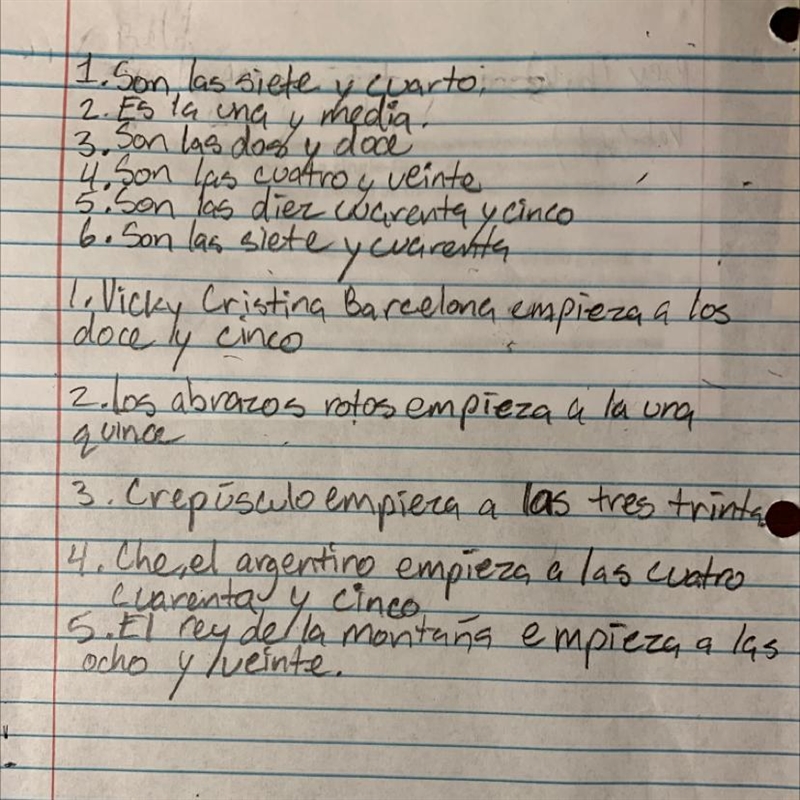 1. Son las siete y cuarto.
2. Es la una y media.
3. Son las dos y doce
4. Son las cuatro y veinte
5. Son las diez cuarenta y cinco
6. Son las siete y cuarenta
1. Vicky Cristina Barcelona empieza a los
doce y cinco
2. Los abrazos rotos empieza a la una
quince
3. Crepúsculo empieza a las tres trinta
4. Che, el argentino empieza a las cuatro
cuarenta y cinco
5. El rey de la montaña empieza a las
ocho y veinte.